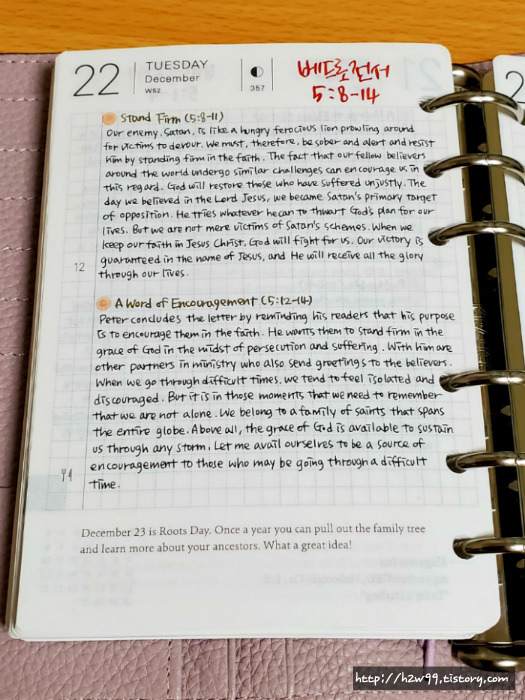 22
TUESDAY
December
W52
357
베드로전서
5:8-14
Stand Firm (5:8-11)
Our enemy, Satan, is like a hungry ferocious lion prowling around
for victims to devour. We must, therefore, be sober and alert and resist
him by standing firm in the faith. The fact that our fellow believers
around the world undergo similar challenges can encourage us in
this regard. God will restore those who have suffered unjustly. The
day we believed in the Lord Jesus, we became Satan's primary target
of opposition. He tries whatever he can to thwart God's plan for our
lives. But we are not mere victims of Satan's schemes. When we
keep our faith in Jesus Christ, God will fight for us. Our victory is
guaranteed in the name of Jesus, and He will receive all the glory
through our lives.
12
A Word of Encouragement (5:12-14)
Peter concludes the letter by reminding his readers that his purpose
is to encourage them in the faith. He wants them to stand firm in the
grace of God in the midst of persecution and suffering. With him are
other partners in ministry who also send greetings to the believers.
When we go through difficult times, we tend to feel isolated and
discouraged. But it is in those moments that we need to remember
that we are not alone. We belong to a family of saints that spans
the entire globe. Above all, the grace of God is available to sustain
us through any storm. Let me avail ourselves to be a source of
encouragement to those who may be going through a difficult
time.
December 23 is Roots Day. Once a year you can pull out the family tree
and learn more about your ancestors. What a great idea!
2
http://h2w99.tistory.com